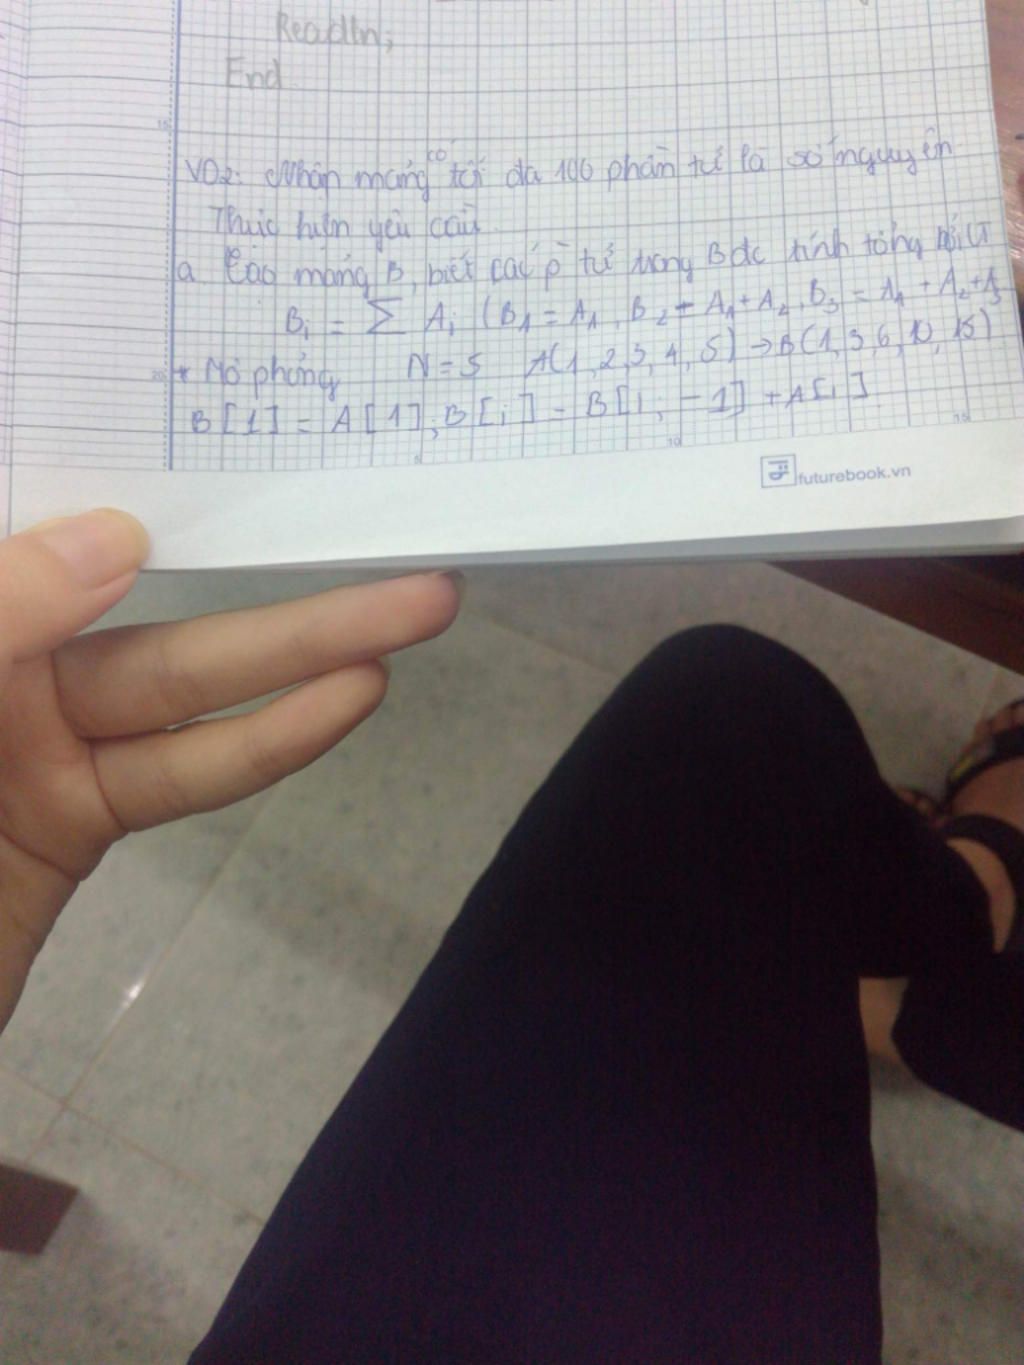 Readln;
End.
15
VD2: Nhập mảng có tối đa 100 phần tử là số nguyên
Thực hiện yêu cầu
a. Tạo mảng B, biết các p tử trong B đc tính tổng bởi CT
Bi = ∑ Ai (B1 = A1, B2 = A1 + A2, B3 = A1 + A2 + A3
20 * Mô phỏng N = 5 A(1, 2, 3, 4, 5) → B(1, 3, 6, 10, 15)
B[1] = A[1]; B[i] = B[i, -1] + A[i]
5 10 15
futurebook.vn